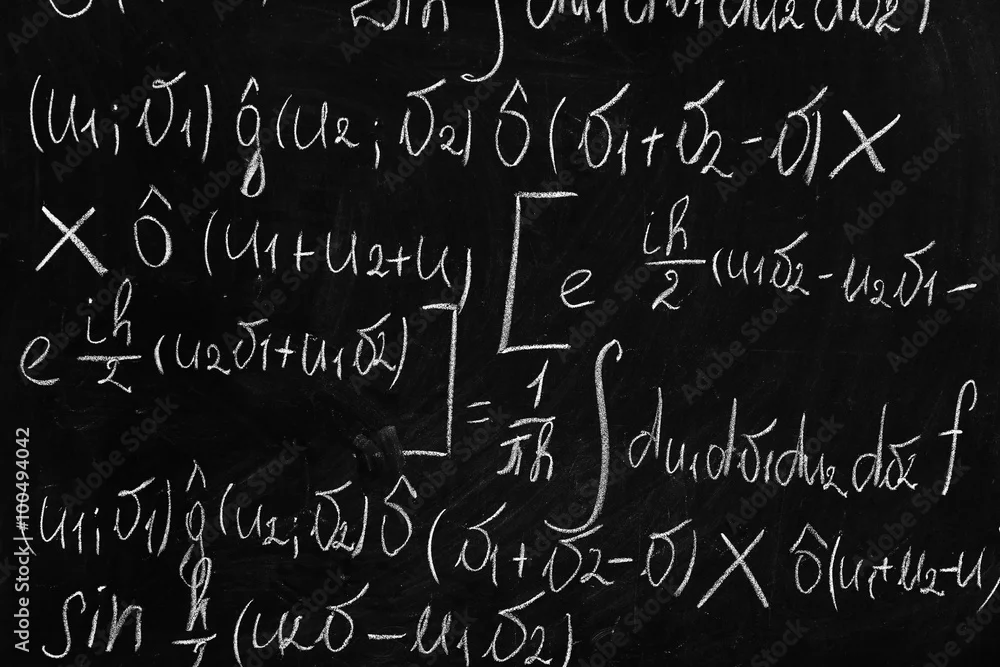 sin ∫ du₁dσ₁du₂dσ₂
(u₁; σ₁) ĝ(u₂; σ₂) δ̂ (σ₁+σ₂-σ) ×
× δ̂ (u₁+u₂+u) [ e iħ/2 (u₁σ₂-u₂σ₁-
e iħ/2 (u₂σ₁+u₁σ₂) ] = 1/πħ ∫ du₁dσ₁du₂dσ₂ f
u₁; σ₁) ĝ(u₂; σ₂) δ̂ (σ₁+σ₂-σ) × δ̂(u₁+u₂-u)
sin ħ/ (u₂σ-u₁σ₂)
Adobe Stock | #100494042